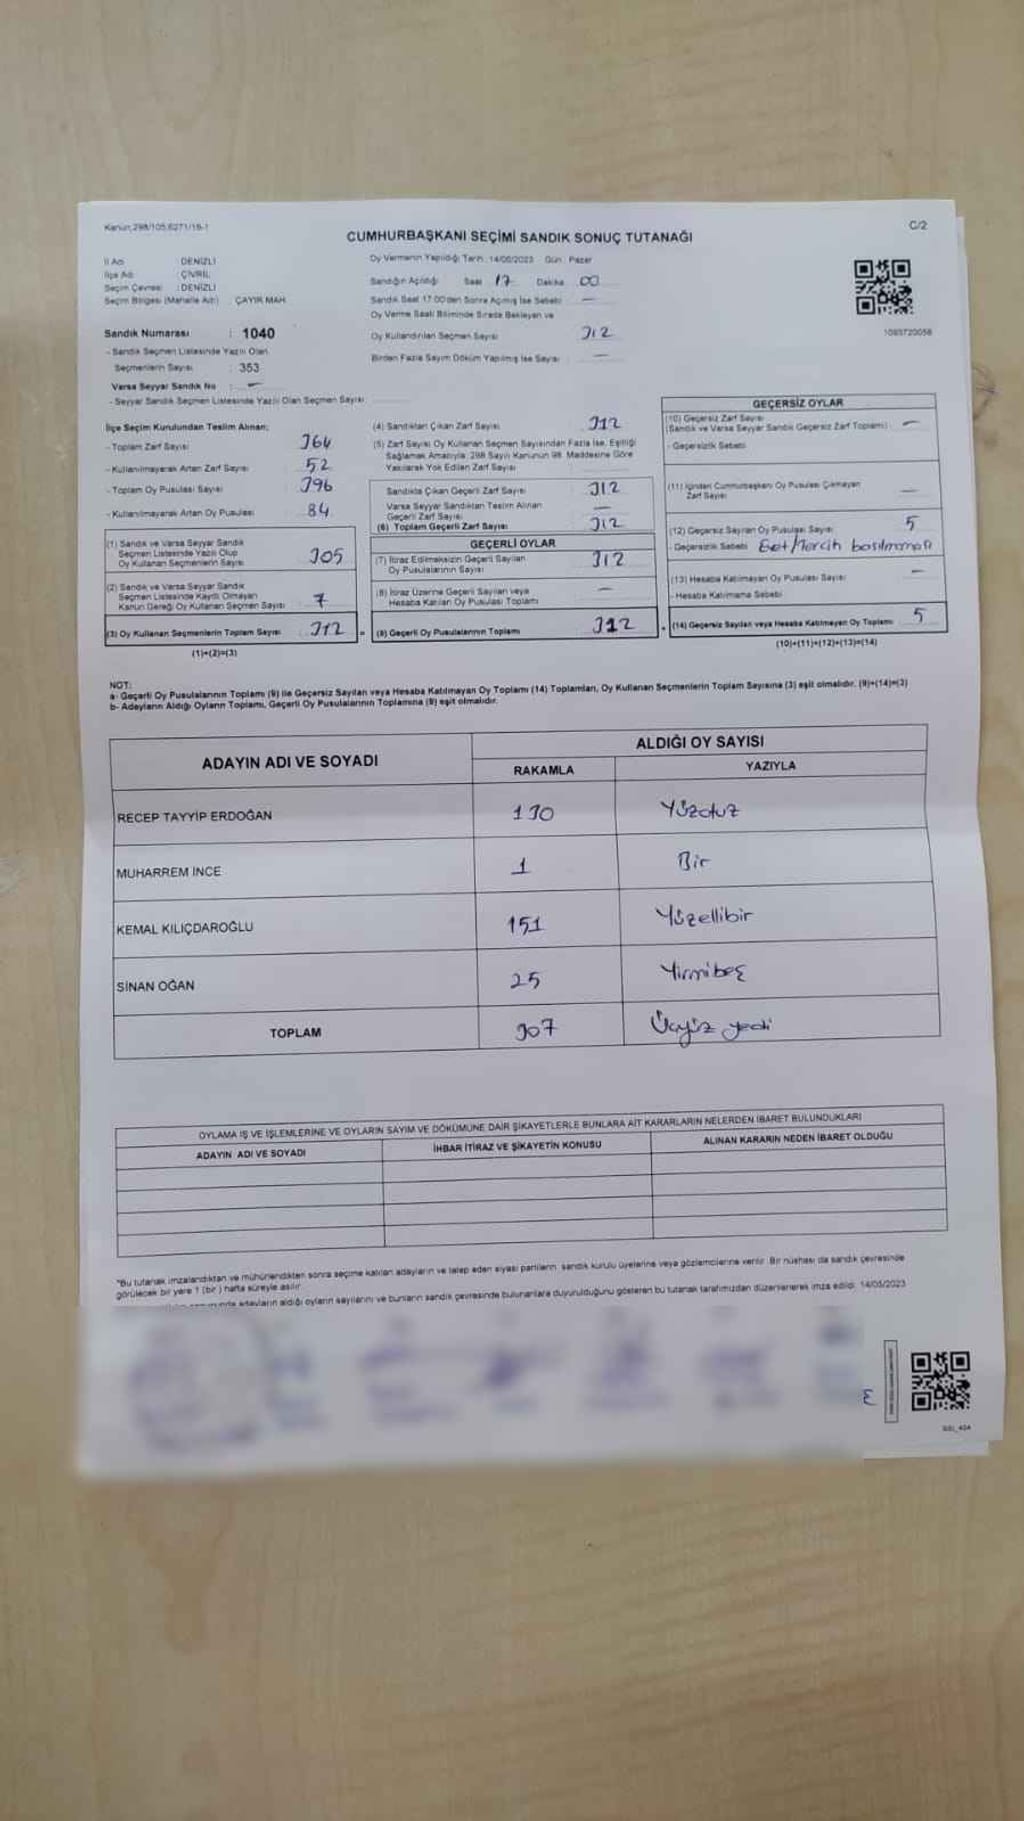 Kanun;298/105,6271/16-1
C/2
CUMHURBAŞKANI SEÇİMİ SANDIK SONUÇ TUTANAĞI
İl Adı : DENİZLİ
İlçe Adı : ÇİVRİL
Seçim Çevresi : DENİZLİ
Seçim Bölgesi (Mahalle Adı) : ÇAYIR MAH.
Sandık Numarası : 1040
- Sandık Seçmen Listesinde Yazılı Olan
Seçmenlerin Sayısı : 353
Varsa Seyyar Sandık No : —
- Seyyar Sandık Seçmen Listesinde Yazılı Olan Seçmen Sayısı
Oy Vermenin Yapıldığı Tarih : 14/05/2023 Gün : Pazar
Sandığın Açıldığı Saat 17 Dakika 00
Sandık Saat 17:00'den Sonra Açılmış İse Sebebi —
Oy Verme Saati Bitiminde Sırada Bekleyen ve
Oy Kullandırılan Seçmen Sayısı 312
Birden Fazla Sayım Döküm Yapılmış İse Sayısı —
1093720058
İlçe Seçim Kurulundan Teslim Alınan;
- Toplam Zarf Sayısı 364
- Kullanılmayarak Artan Zarf Sayısı 52
- Toplam Oy Pusulası Sayısı 396
- Kullanılmayarak Artan Oy Pusulası 84
(1) Sandık ve Varsa Seyyar Sandık
Seçmen Listesinde Yazılı Olup
Oy Kullanan Seçmenlerin Sayısı 305
(2) Sandık ve Varsa Seyyar Sandık
Seçmen Listesinde Kayıtlı Olmayan
Kanun Gereği Oy Kullanan Seçmen Sayısı 7
(3) Oy Kullanan Seçmenlerin Toplam Sayısı 312 =
(1)+(2)=(3)
(4) Sandıktan Çıkan Zarf Sayısı 312
(5) Zarf Sayısı Oy Kullanan Seçmen Sayısından Fazla İse, Eşitliği
Sağlamak Amacıyla; 298 Sayılı Kanunun 98. Maddesine Göre
Yakılarak Yok Edilen Zarf Sayısı
Sandıkta Çıkan Geçerli Zarf Sayısı 312
Varsa Seyyar Sandıktan Teslim Alınan
Geçerli Zarf Sayısı —
(6) Toplam Geçerli Zarf Sayısı 312
GEÇERLİ OYLAR
(7) İtiraz Edilmeksizin Geçerli Sayılan
Oy Pusulalarının Sayısı 312
(8) İtiraz Üzerine Geçerli Sayılan veya
Hesaba Katılan Oy Pusulası Toplamı —
(9) Geçerli Oy Pusulalarının Toplamı 312 +
GEÇERSİZ OYLAR
(10) Geçersiz Zarf Sayısı
(Sandık ve Varsa Seyyar Sandık Geçersiz Zarf Toplamı) —
- Geçersizlik Sebebi
(11) İçinden Cumhurbaşkanı Oy Pusulası Çıkmayan
Zarf Sayısı —
(12) Geçersiz Sayılan Oy Pusulası Sayısı 5
- Geçersizlik Sebebi Evet/Tercih basılmaması
(13) Hesaba Katılmayan Oy Pusulası Sayısı —
- Hesaba Katılmama Sebebi
(14) Geçersiz Sayılan veya Hesaba Katılmayan Oy Toplamı 5
(10)+(11)+(12)+(13)=(14)
NOT:
a- Geçerli Oy Pusulalarının Toplamı (9) ile Geçersiz Sayılan veya Hesaba Katılmayan Oy Toplamı (14) Toplamları, Oy Kullanan Seçmenlerin Toplam Sayısına (3) eşit olmalıdır. (9)+(14)=(3)
b- Adayların Aldığı Oyların Toplamı, Geçerli Oy Pusulalarının Toplamına (9) eşit olmalıdır.
ADAYIN ADI VE SOYADI ALDIĞI OY SAYISI
RAKAMLA YAZIYLA
RECEP TAYYİP ERDOĞAN 130 Yüzotuz
MUHARREM İNCE 1 Bir
KEMAL KILIÇDAROĞLU 151 Yüzellibir
SİNAN OĞAN 25 Yirmibeş
TOPLAM 307 Üçyüz yedi
OYLAMA İŞ VE İŞLEMLERİNE VE OYLARIN SAYIM VE DÖKÜMÜNE DAİR ŞİKAYETLERLE BUNLARA AİT KARARLARIN NELERDEN İBARET BULUNDUKLARI
ADAYIN ADI VE SOYADI İHBAR İTİRAZ VE ŞİKAYETİN KONUSU ALINAN KARARIN NEDEN İBARET OLDUĞU
*Bu tutanak imzalandıktan ve mühürlendikten sonra seçime katılan adayların ve talep eden siyasi partilerin sandık kurulu üyelerine veya gözlemcilerine verilir. Bir nüshası da sandık çevresinde
görülecek bir yere 1 (bir) hafta süreyle asılır.
adayların aldığı oyların sayılarını ve bunların sandık çevresinde bulunanlara duyurulduğunu gösteren bu tutanak tarafımızdan düzenlenerek imza edildi. 14/05/2023